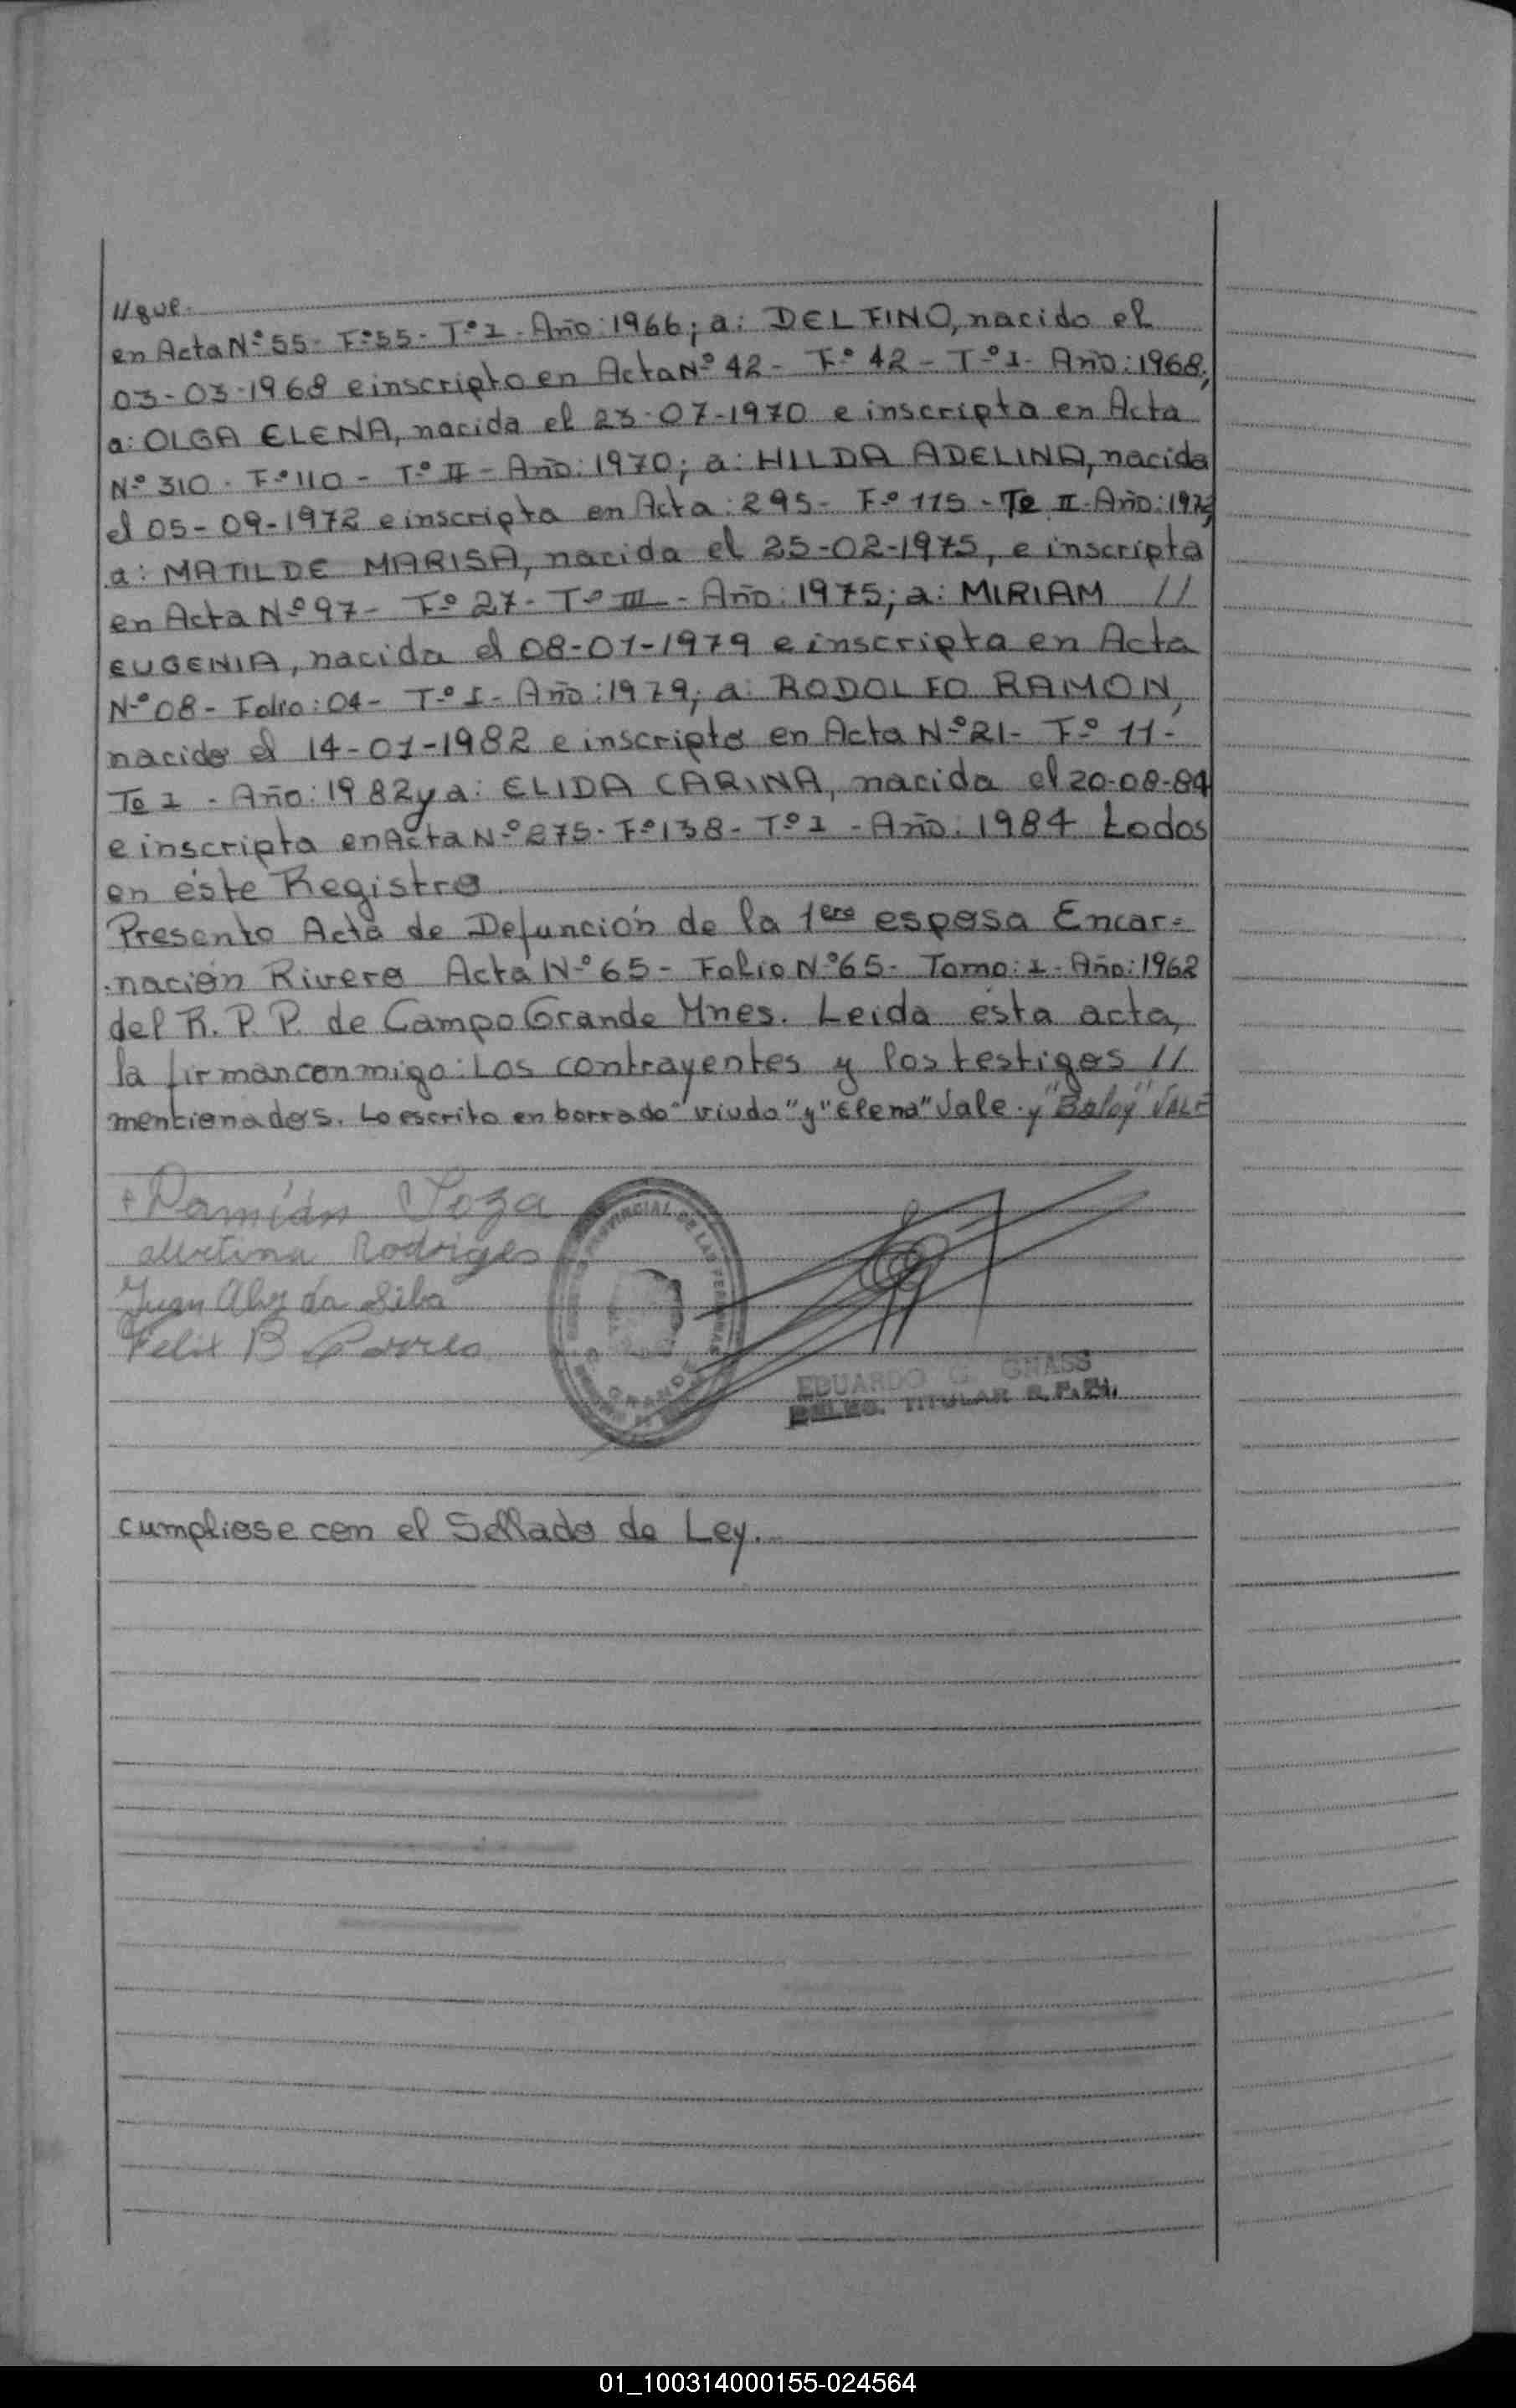 //que.
en Acta Nº 55- Fº 55- Tº I - Año: 1966; a: DELFINO, nacido el
03-03-1968 e inscripto en Acta Nº 42 - Fº 42 - Tº I - Año: 1968;
a: OLGA ELENA, nacida el 23-07-1970 e inscripta en Acta
Nº 310 - Fº 110 - Tº II - Año: 1970; a: HILDA ADELINA, nacida
el 05-09-1972 e inscripta en Acta: 295- Fº 115 - Tº II - Año: 1972;
a: MATILDE MARISA, nacida el 25-02-1975, e inscripta
en Acta Nº 97- Fº 27- Tº III - Año: 1975; a: MIRIAM //
EUGENIA, nacida el 08-01-1979 e inscripta en Acta
Nº 08 - Folio: 04 - Tº I - Año: 1979; a: RODOLFO RAMON,
nacido el 14-01-1982 e inscripto en Acta Nº 21- Fº 11-
Tº I - Año: 1982 y a: ELIDA CARINA, nacida el 20-08-84
e inscripta en Acta Nº 275- Fº 138- Tº I - Año: 1984 todos
en éste Registro
Presento Acta de Defunción de la 1era esposa Encar=
nación Rivero Acta Nº 65 - Folio Nº 65- Tomo: I - Año: 1962
del R. P. P. de Campo Grande Mnes. Leida ésta acta,
la firman conmigo: Los contrayentes y los testigos //
mencionados. Lo escrito en borrado "viudo" y "Elena" Vale. y "Baloy" VALE
Damián Toza
Albertina Rodriges
Juan da Silva
Felix B
PROVINCIAL DE LAS PERSONAS
GRANDE
EDUARDO G. GNASS
DELEG. TITULAR R.P.P.
cumpliose con el Sellado de Ley.
01_100314000155-024564